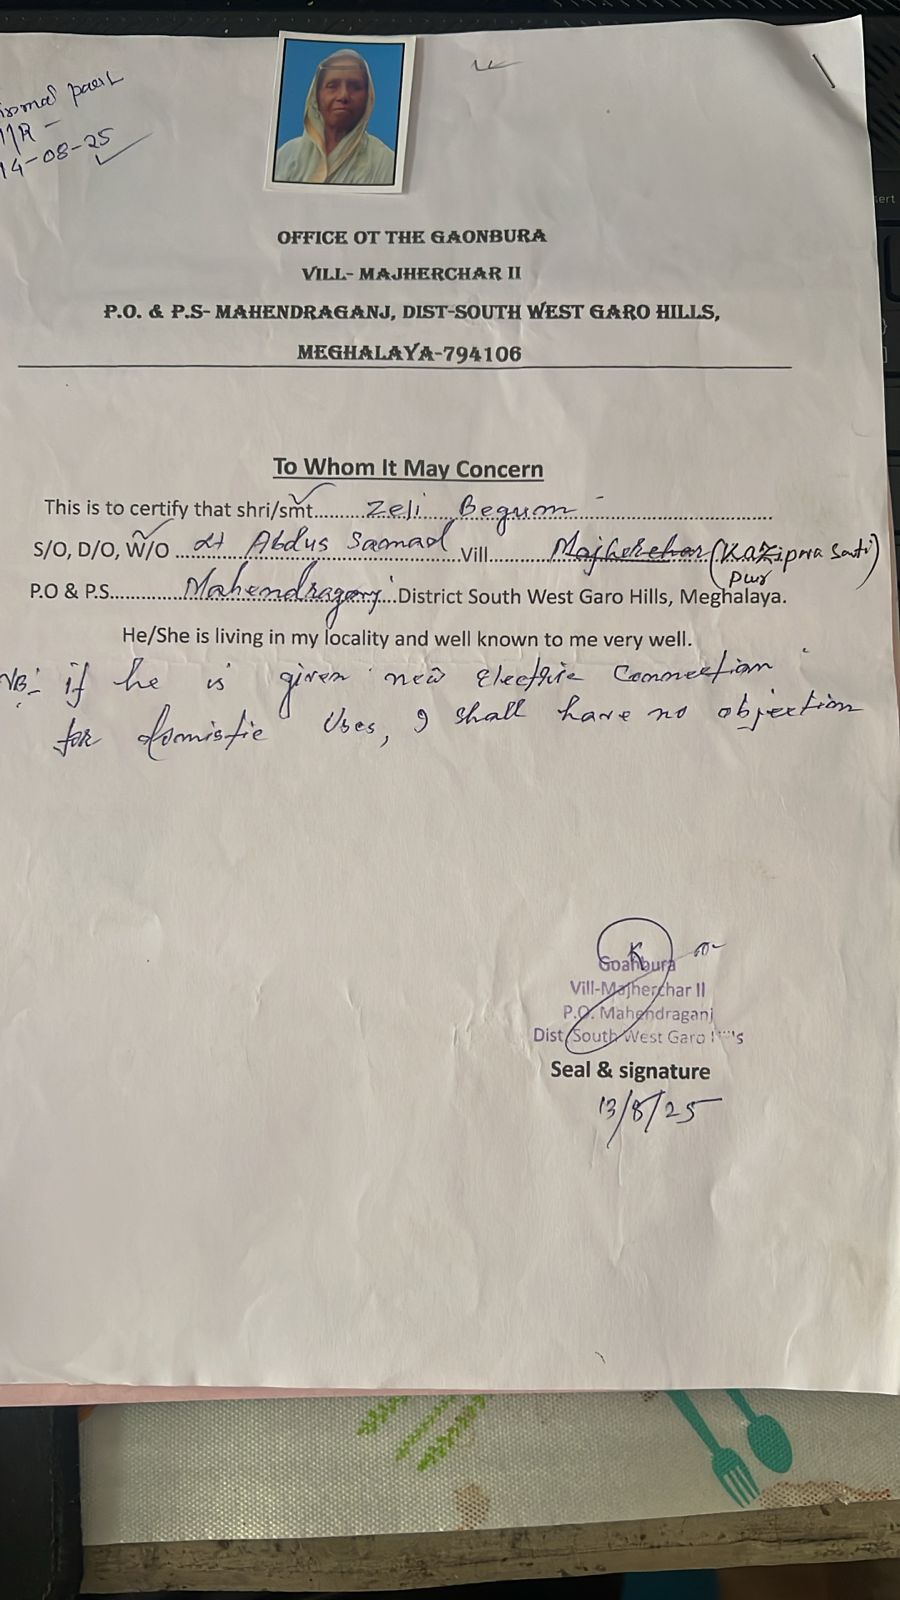 14-08-25
OFFICE OT THE GAONBURA
VILL- MAJHERCHAR II
P.O. & P.S- MAHENDRAGANJ, DIST-SOUTH WEST GARO HILLS,
MEGHALAYA-794106
To Whom It May Concern
This is to certify that shri/smt........Zeli Begum
S/O, D/O, W/O...Lt Abdus Samad...Vill.......Majherchar (
pur
P.O & P.S...........Mahendraganj...District South West Garo Hills, Meghalaya.
He/She is living in my locality and well known to me very well.
NB:- if he is given new Electric Connection
for domistic Uses, I shall have no objection
Goahbura
Vill-Majherchar II
P.O. Mahendraganj
Dist. South West Garo Hills
Seal & signature
13/8/25